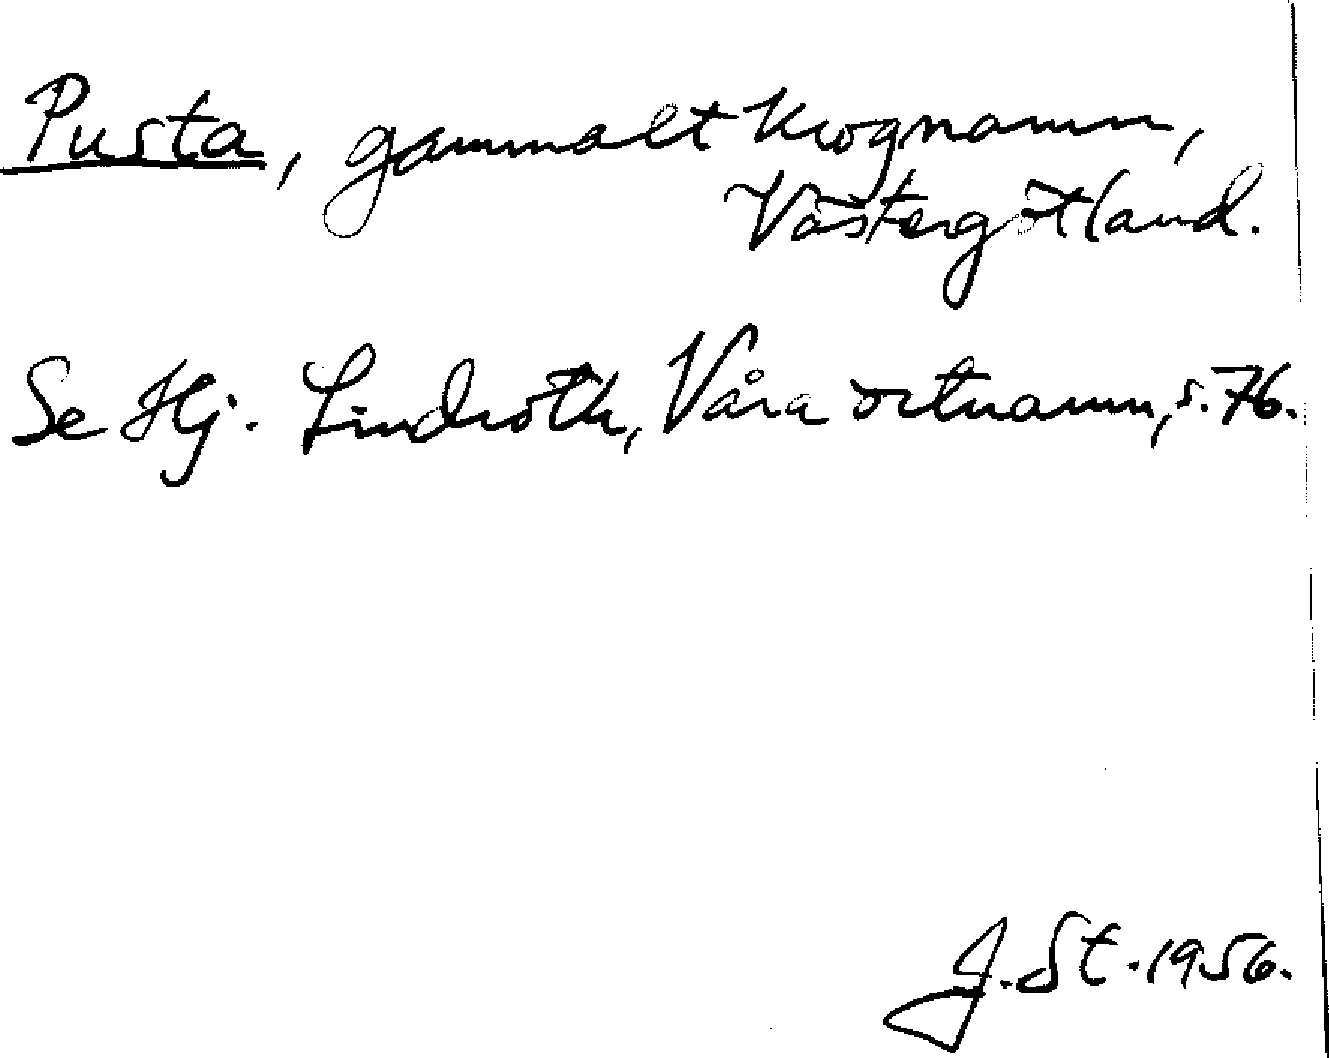 Pusta, gammalt krognamn,
Västergötland.
Se Hj. Lindroth, Våra ortnamn, s. 76.
J. St. 1956.